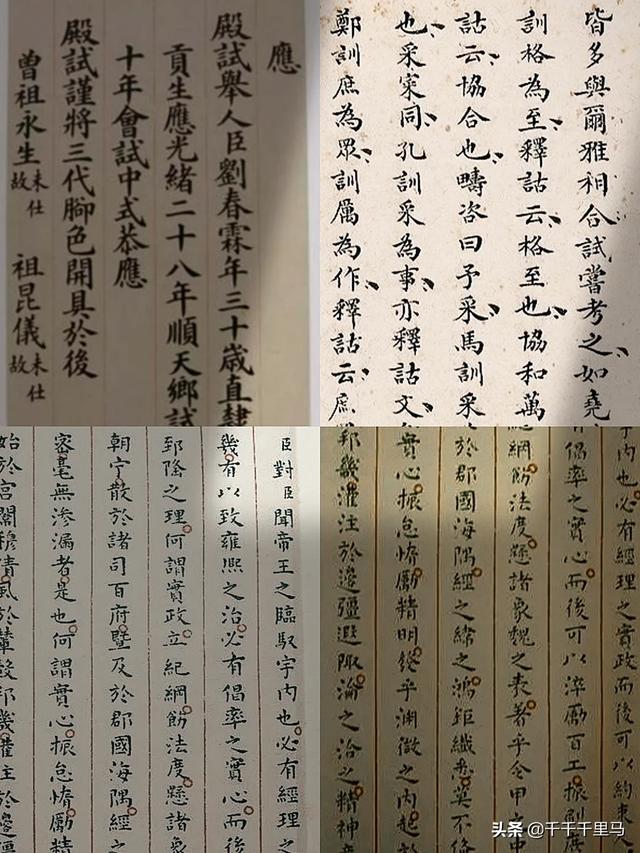 應
殿試舉人臣劉春霖年三十歲直隸
貢生應光緒二十八年順天鄉試
十年會試中式恭應
殿試謹將三代腳色開具於後
曾祖永生未仕故 祖昆儀未仕故
皆多與爾雅相合試嘗考之如堯
訓格為至釋詁云格至也協和萬
詁云協合也疇咨曰予采馬訓采
也采寀同孔訓采為事亦釋詁文
鄭訓庶為眾訓厲為作釋詁云庶
臣對臣聞帝王之臨馭宇內也必有經理之
幾有以致雍熙之治必有倡率之實心而後
郅隆之理何謂實政立紀綱飭法度懸諸象
朝宁散於諸司百府暨及於郡國海隅經之
審毫無滲漏者是也何謂實心振怠惰勵精
始於宮閫穆清風於輦轂邦畿灌注於邊疆
宇內也必有經理之實政而後可以約束人
倡率之實心而後可以淬勵百工振刷庶
紀綱飭法度懸諸象魏之表著乎令甲中
於郡國海隅經之緯之鴻鉅纖悉莫不備
實心振怠惰勵精明發乎淵微之內起於
邦畿灌注於邊疆遐陬淪之洽之精神
头条 @千千千里马